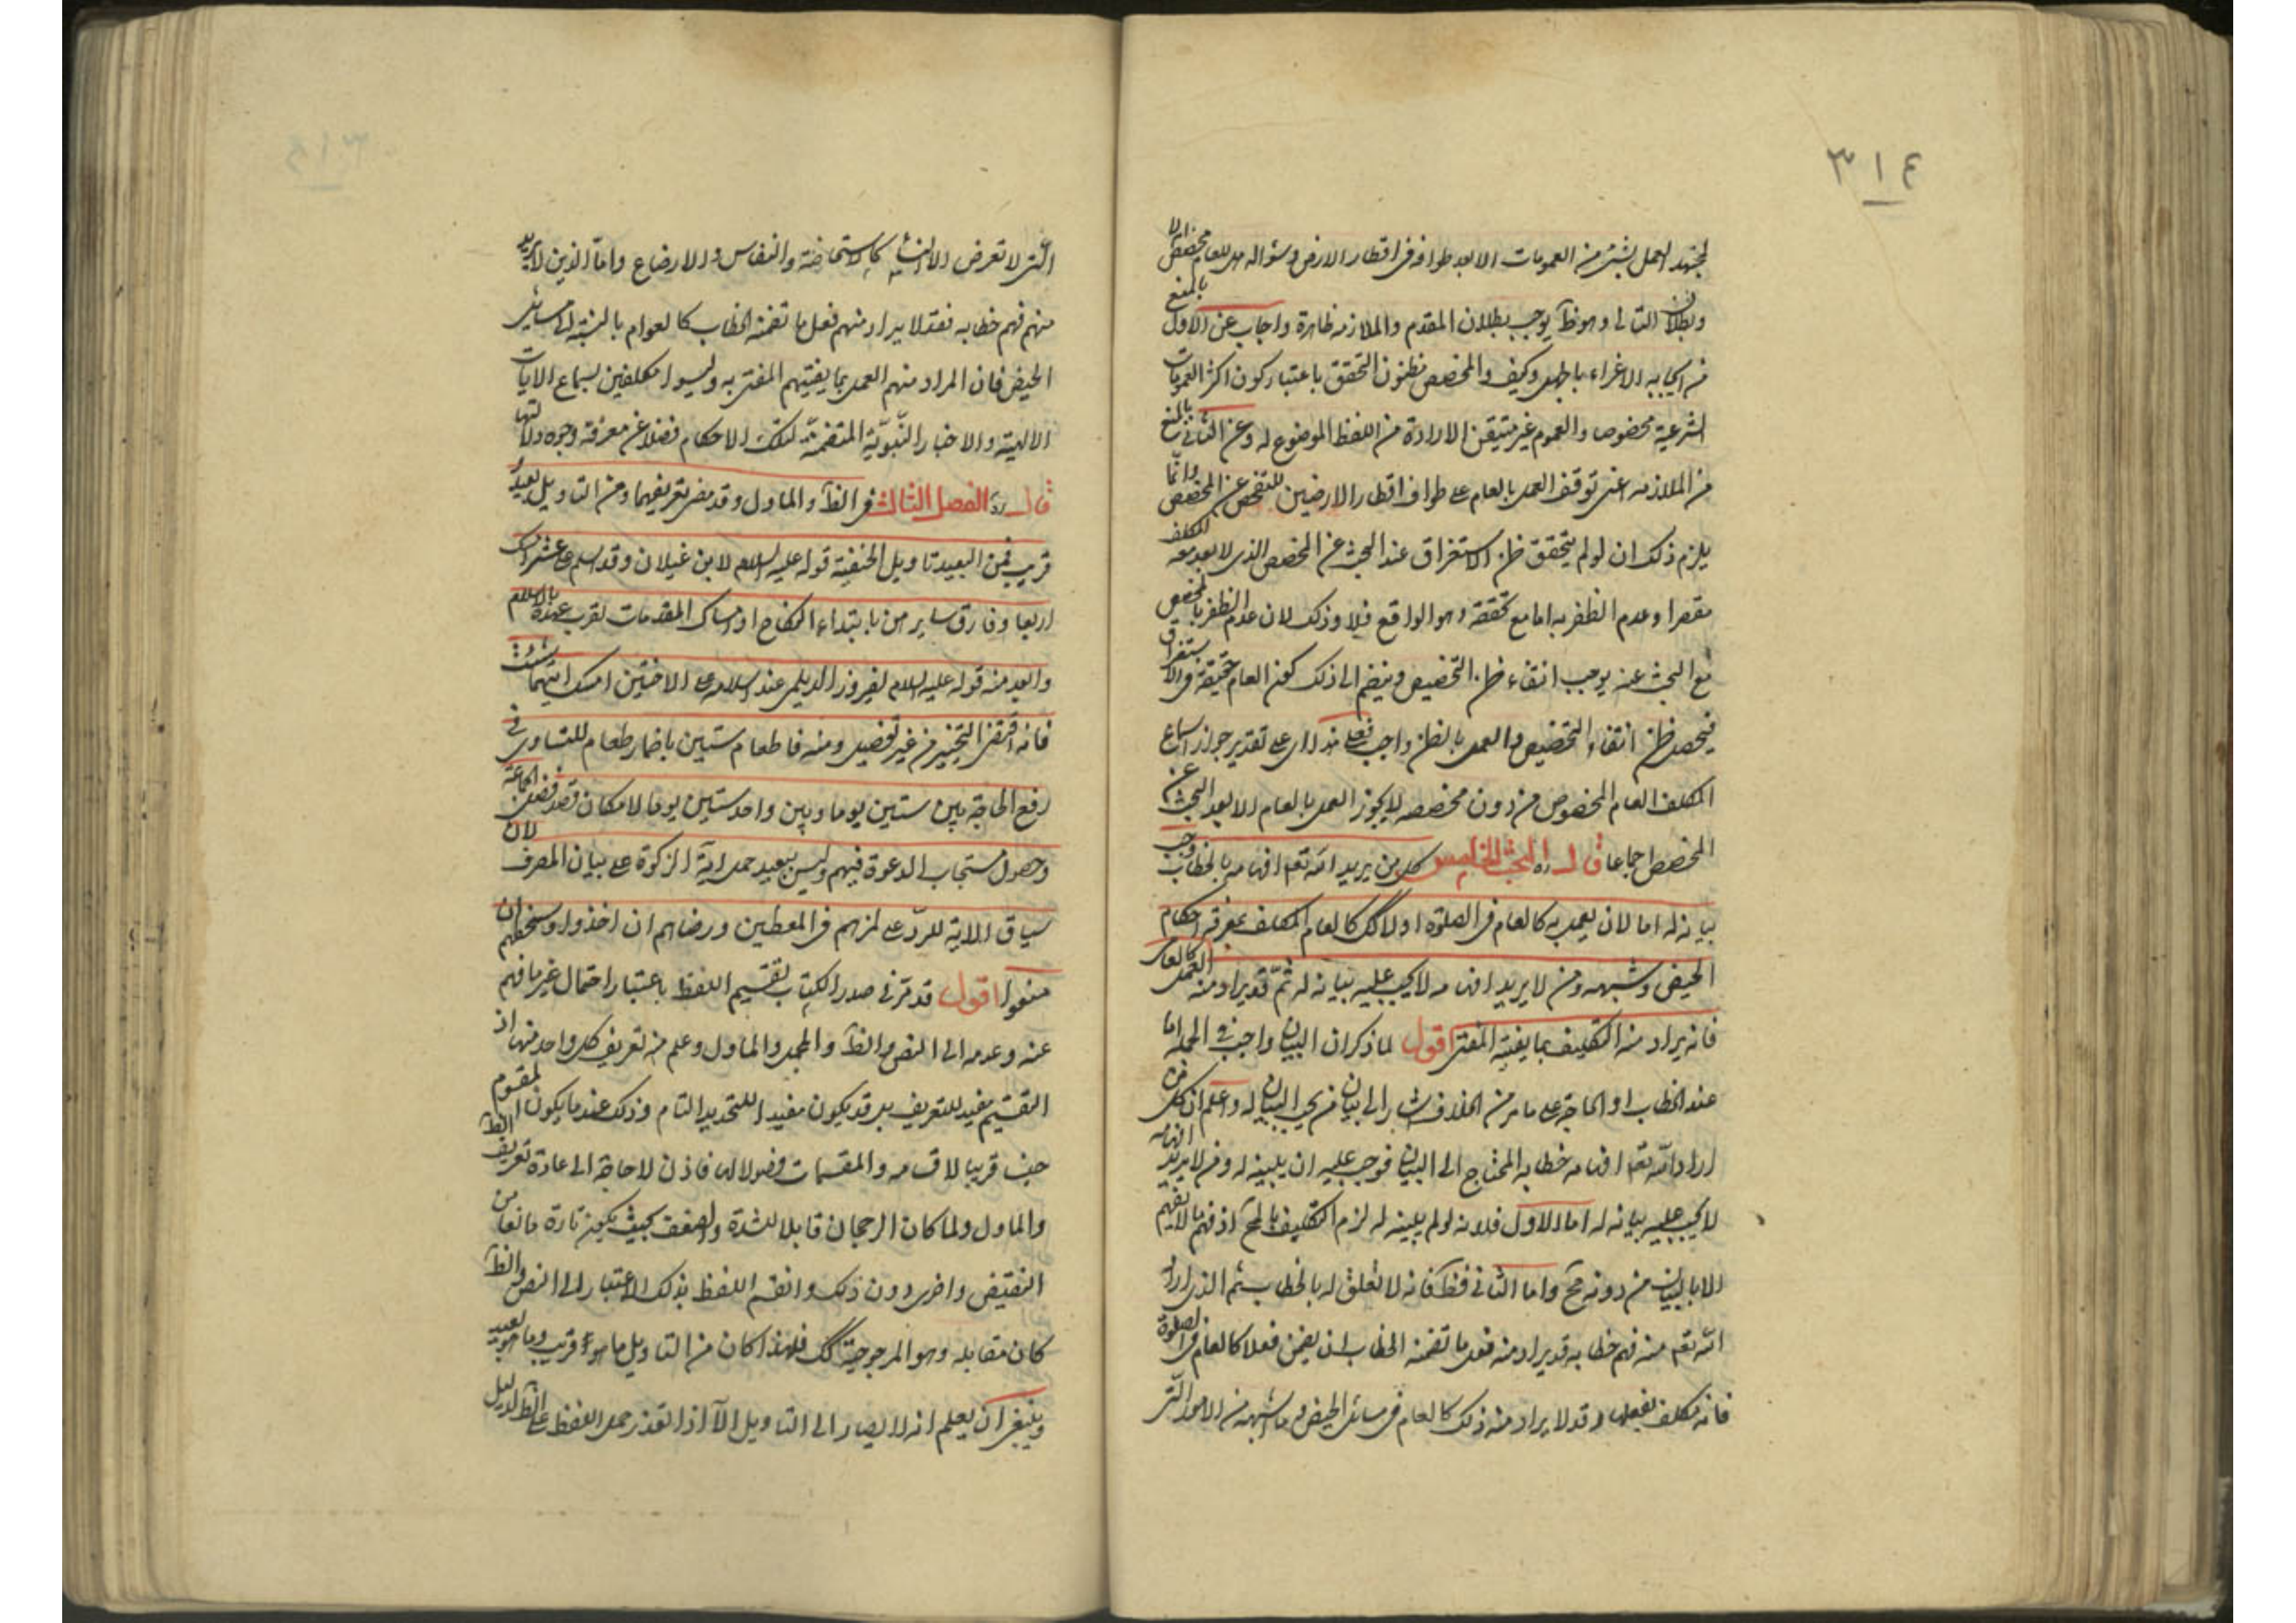 ٣١٤
لمجتهد العمل بشئ من العمومات الا بعد طوافه فى اقطار الارض وسؤاله هل للعام مخصص ام لا
وبطلان التالى وهو ظ يوجب بطلان المقدم والملازمه ظاهرة واجاب عن الاول بالمنع
من ايجابه الاغراء بالجهل وكيف والمخصص مظنون التحقق باعتبار كون اكثر العمومات
الشرعية مخصوصا والعموم غير متيقن الارادة من اللفظ الموضوع له وعن الثانى بالمنع
من الملازمه اعنى توقف العمل بالعام على طواف اقطار الارضين للتفحص عن المخصص وانّما
يلزم ذلك ان لو لم يتحقق ظن الاستغراق عند البحث عن المخصص الذى لا يعد معه المكلف
مقصرا وعدم الظفر به اما مع تحققه وهو الواقع فلا وذلك لان عدم الظفر بالمخصص
مع البحث عنه يوجب انتفاء ظن التخصيص وينضم الى ذلك كون العام حقيقة فى الاستغراق
فيحصل ظن انتفاء التخصيص والعمل بالظن واجب فعلى هذا اى على تقدير جواز اسماع
المكلف العام المخصوص من دون مخصصه لا يجوز العمل بالعام الا بعد البحث عن
المخصص اجماعا قال ره البحث الخامس كل من يريد الله تعم افهامه بالخطاب وجب
بيانه له اما لان يعمل به كالعام فى الصلوة او لا كك كالعام المكلف بمعرفه احكام
الحيض وشبهه ومن لا يريد افهامه لا يجب عليه بيانه له ثمّ قد يراد منه العمل كالعامى
فانه يراد منه التكليف بما يفتيه المفتى اقول لما ذكر ان البيان واجب فى الجمله اما
عند الخطاب او الحاجة على ما مر من الخلاف اشار الى بيان من يجب البيان له واعلم ان كل من
اراد الله تعم افهامه خطابه المحتاج الى البيان فوجب عليه ان يبينه له ومن لا يريد افهامه
لا يجب عليه بيانه له اما الاول فلانه لو لم يبينه له لزم التكليف بالمح اذ فهم ما لا يفهم
الا بالبيان من دونه مح واما الثانى فظ فانه لا تعلق له بالخطاب ثم الذى اراد
الله تعم منه فهم خطابه قد يراد منه فعل ما تضمنه الخطاب ان تضمن فعلا كالعام فى الصلوة
فانه مكلف بفعلها وقد لا يراد منه ذلك كالعام فى مسائل الحيض وما اشبهه من الامور الّتى
الّتى لا تعرض الا للنساء كالاستحاضة والنفاس والارضاع وامّا الذين لا يريد
منهم فهم خطابه فقد لا يراد منهم فعل ما تضمنه الخطاب كالعوام بالنسبة الى مسائل
الحيض فان المراد منهم العمل بما يفتيهم المفتى به وليسوا مكلفين بسماع الايات
الالهية والاخبار النّبويّة المتضمّنة لتلك الاحكام فضلا عن معرفة وجوه دلالتها
قال ره الفصل الثالث فى الظ والماول وقد مضى تعريفهما ومن التاويل بعيد و
قريب فمن البعيد تاويل الحنفية قوله عليه السلام لابن غيلان وقد اسلم على عشر امسك
اربعا وفارق سايرهن بابتداء النكاح او امساك المقدمات لقرب عهده بالاسلام
وابعد منه قوله عليه السلام لفيروز الديلمى عند اسلامه على الاختين امسك ايتهما شئت
فانه اقتضى التخيير من غير تفصيل ومنه فاطعام ستين باضمار طعام للتساوى فى
رفع الحاجة بين ستين يوما وبين واحد ستين يوما لامكان قصد فضل الجماعة
وحصول مستجاب الدعوة فيهم وليس ببعيد حمل اية الزكوة على بيان المصرف لان
سياق الاية للردّ على لمزهم فى المعطين ورضاهم ان اخذوا وسخطهم ان
منعوا اقول قد مرّ فى صدر الكتاب تقسيم اللفظ باعتبار احتمال غير ما فهم
عنه وعدمه الى النص والظ والمجمل والماول وعلم من تعريف كل واحد منها اذ
التقسيم مفيد للتعريف بل قد يكون مفيدا للتحديد التام وذلك عند ما يكون المقسوم
جنسا قريبا لاقسامه والمقسمات فصولا لها فاذن لا حاجة الى اعادة تعريف الظ
والماول ولما كان الرجحان قابلا للشدة والضعف بحيث يكون تارة مانعا من
النقيض واخرى دون ذلك وانقسم اللفظ بذلك الاعتبار الى النص والظ
كان مقابله وهو المرجوحية كك فلهذا كان من التاويل ما هو قريب وما هو بعيد
وينبغى ان يعلم انه لا يصار الى التاويل الّا اذا تعذر حمل اللفظ على الظ لدليل